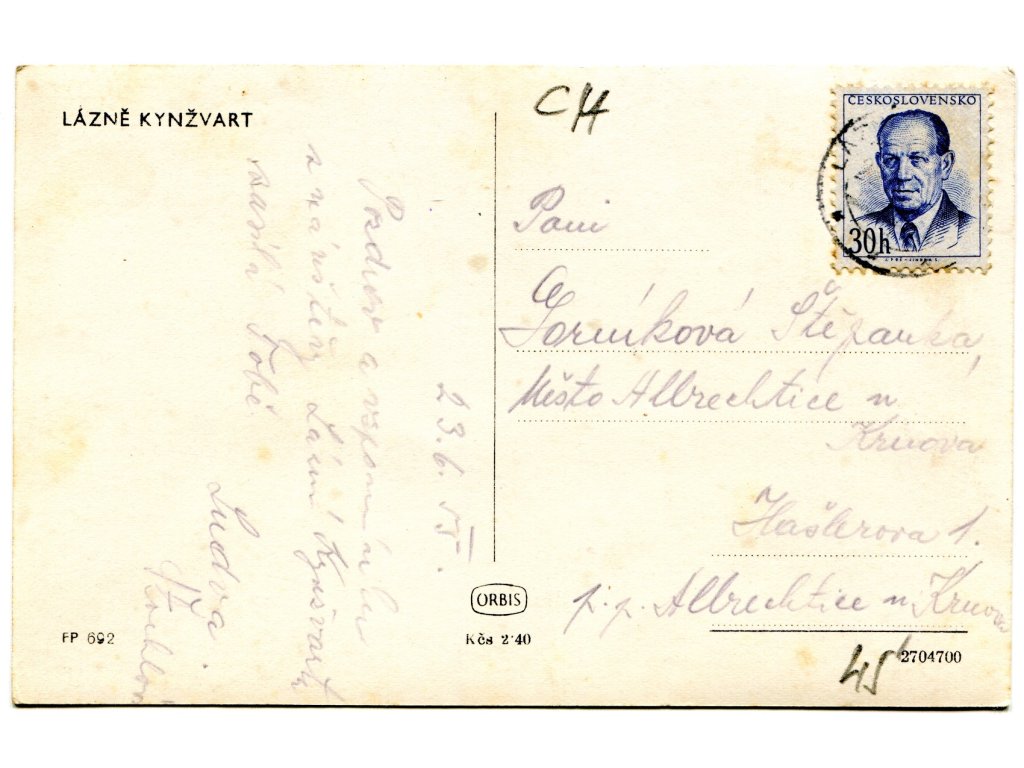 LÁZNĚ KYNŽVART
23.6.55.
Pozdrav a vzpomínku
z návštěvy Lázní Kynžvart
zasílá Tobě
Ludva
FP 692
ORBIS
Kčs 2·40
CH
ČESKOSLOVENSKO
30h
Paní
Gorníková Štěpánka,
Město Albrechtice n
Krnova
Hašlerova 1.
p. p. Albrechtice n Krnova
45
2704700